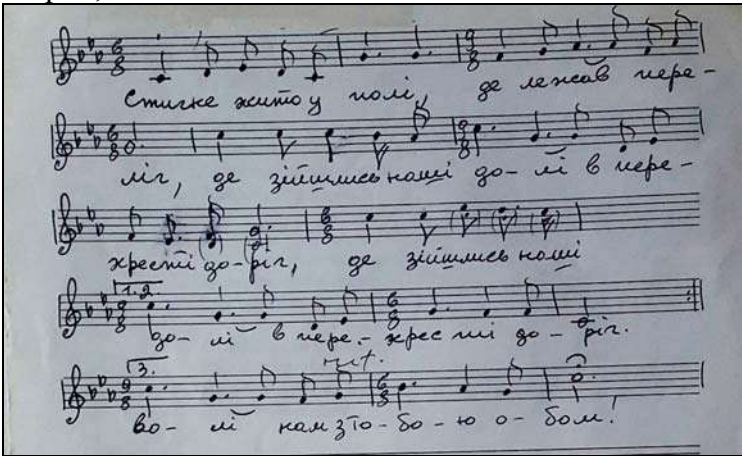 6/8 9/8
Стигне жито у полі, де лежав пере-
6/8 9/8
ліг, де зійшлись наші до- лі в пере-
6/8
хресті до- ріг, де зійшлись наші
1.2. 9/8 6/8
до- лі в пере- хресті до- ріг.
3. 9/8 rit. 6/8
во- лі нам з то- бо- ю о- бом!